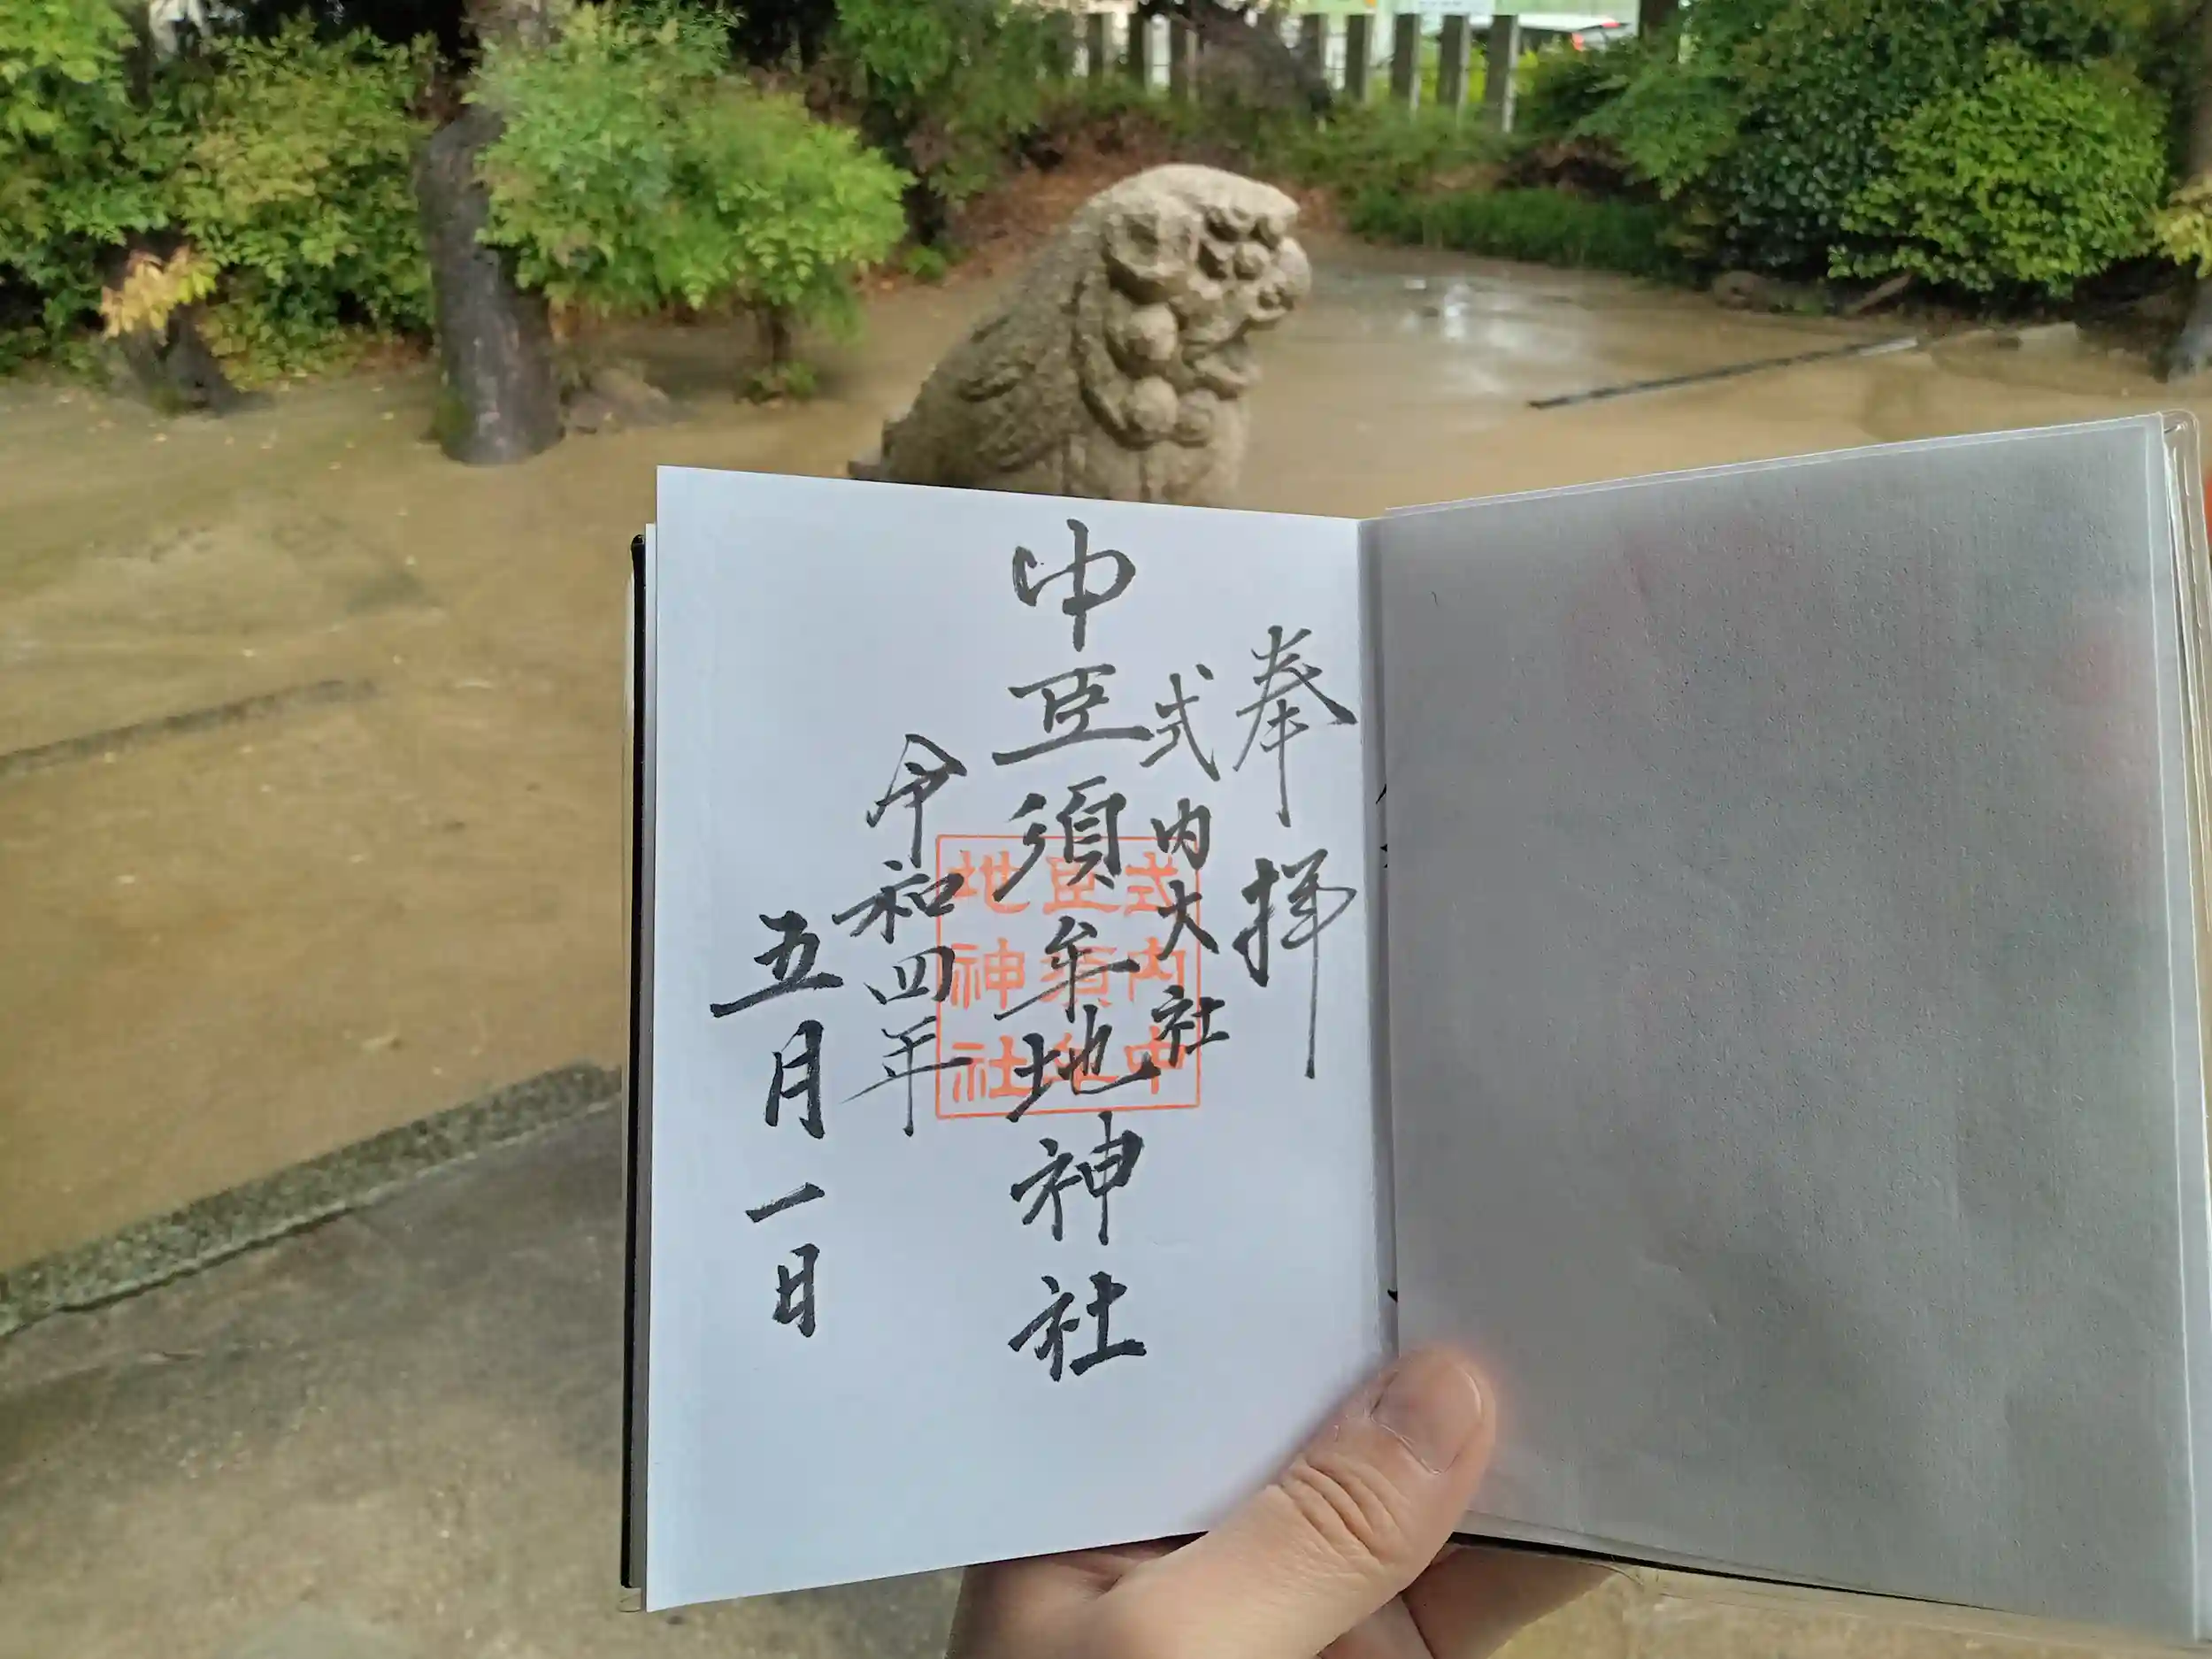 奉拝
式内大社
中臣須牟地神社
令和四年
五月一日
式内中
臣須牟
地神社